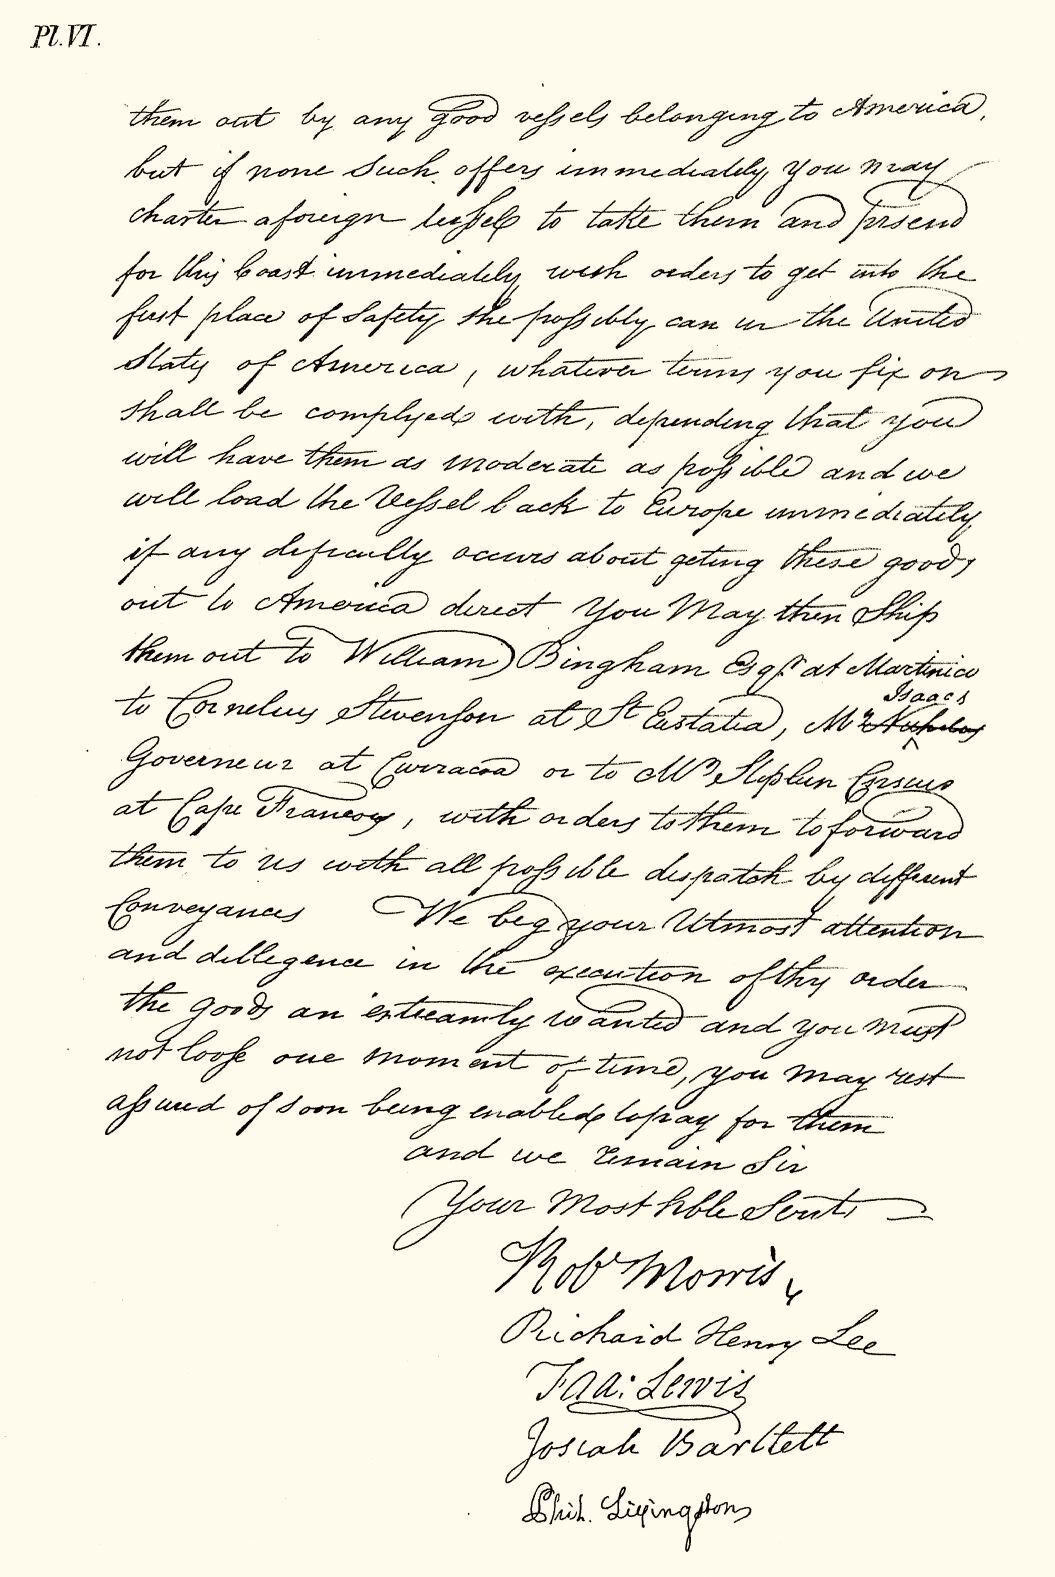 Pl. VI.
them out by any good vessels belonging to America,
but if none Such offers immediately, you may
charter a foreign Vessel to take them and send
for this Coast immediately with orders to get into the
first place of Safety She possibly can in the United
States of America, whatever terms you fix on
shall be complyed with, depending that you
will have them as moderate as possible and we
will load the Vessel back to Europe immediately,
if any deficulty occurs about geting these goods
out to America direct You May then Ship
them out to William Bingham Esqr. at Martinico
to Cornelius Stevenson at St Eustatia, Mr Isaac
Governeur at Curracoa or to Mr Stephen
at Cape Francoy, with orders to them to forward
them to us with all possible dispatch by different
Conveyances We beg your Utmost attention
and dillegence in the execution of this order
the goods are extreamly wanted and you must
not loose one moment of time, you may rest
assured of soon being enabled to pay for them
and we remain Sir
Your Most hble Servts
Robt Morris
Richard Henry Lee
Fras: Lewis
Josiah Bartlett
Phil. Livingston